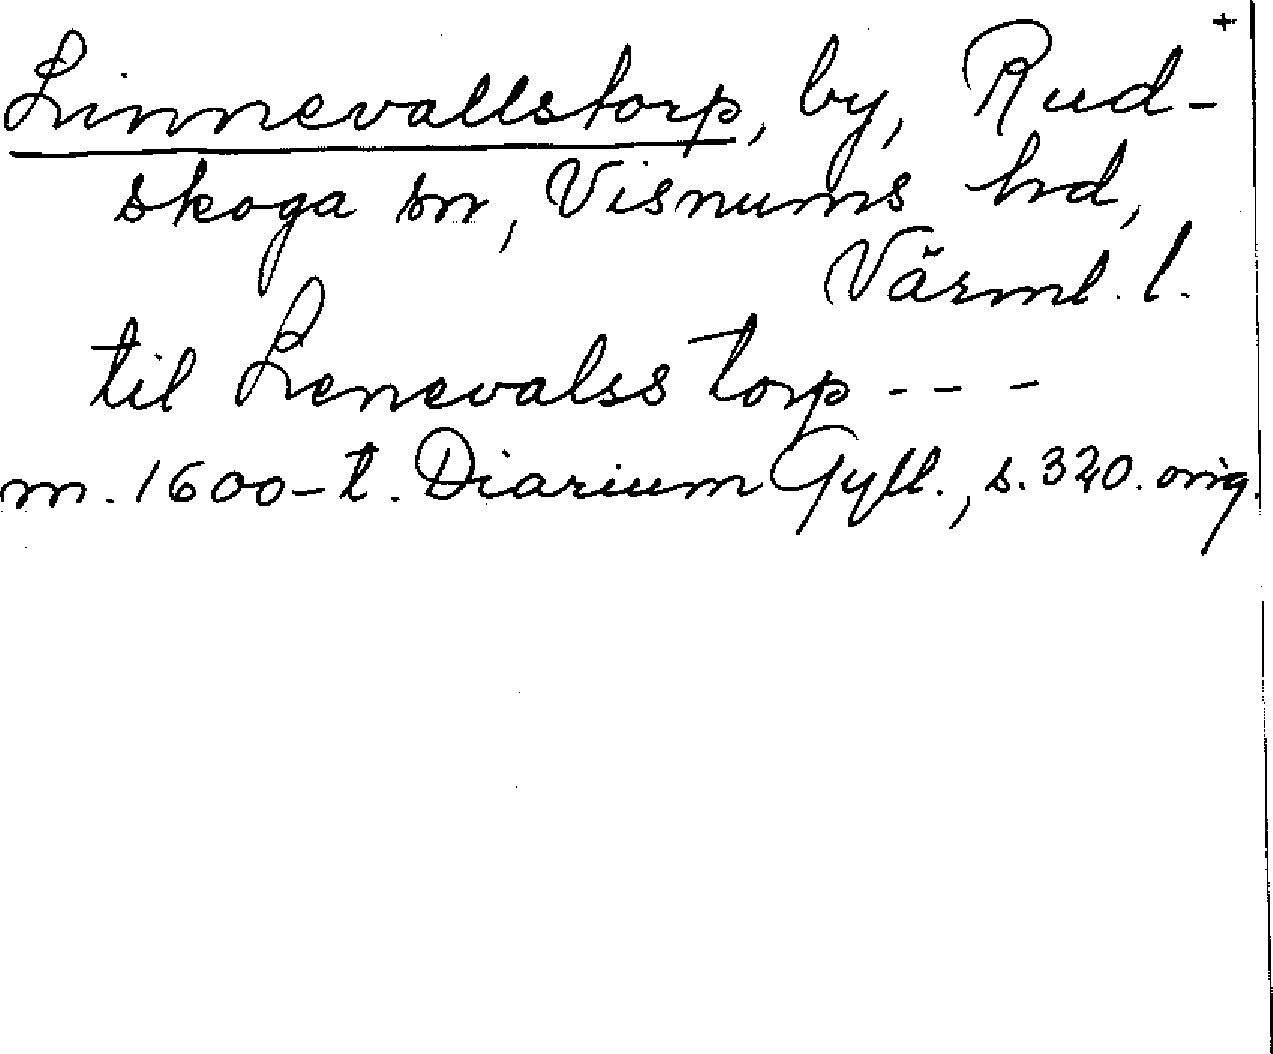 Linnevallstorp, by, Rud- +
skoga sn, Visnums hd,
Värml. l.
til Lenevalss torp - - -
m. 1600-t. Diarium Gyll., s. 320. orig.